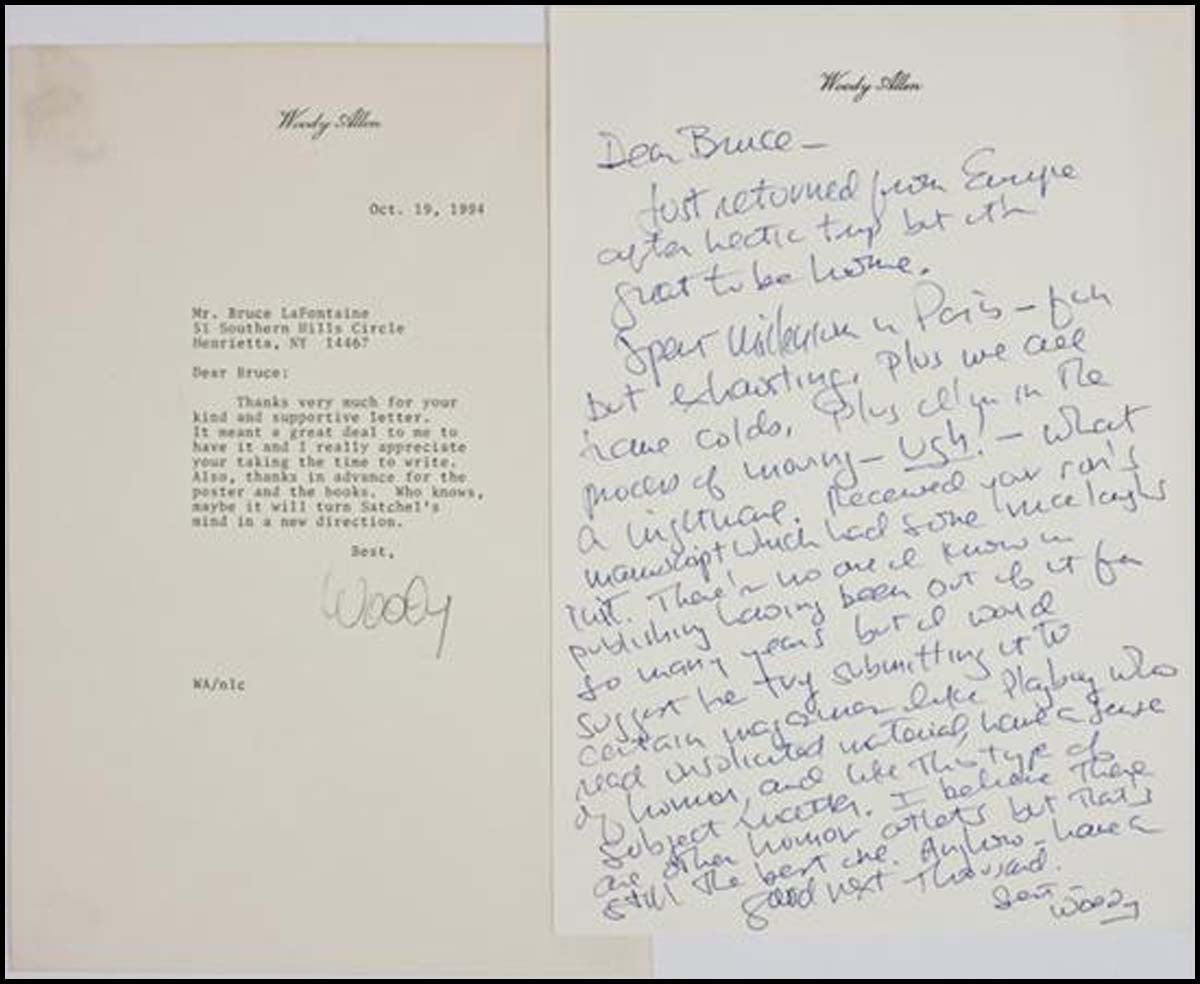 Woody Allen
Oct. 19, 1994
Mr. Bruce LaFontaine
51 Southern Hills Circle
Henrietta, NY 14467
Dear Bruce:
Thanks very much for your
kind and supportive letter.
It meant a great deal to me to
have it and I really appreciate
your taking the time to write.
Also, thanks in advance for the
poster and the books. Who knows,
maybe it will turn Satchel's
mind in a new direction.
Best,
Woody
WA/nlc
Woody Allen
Dear Bruce—
Just returned from Europe
after hectic trip but it's
great to be home.
Spent Millenium in Paris — fun
but exhausting. Plus we all
have colds, plus I'm in the
process of moving — Ugh! — what
a nightmare. Received your son's
manuscript which had some nice laughs
in it. There's no one I know in
publishing having been out of it for
so many years but I would
suggest he try submitting it to
certain magazines like Playboy who
read unsolicited material, have a sense
of humor, and like this type of
subject matter. I believe there
are other humor outlets but that's
still the best one. Anyhow — have a
good next thousand.
Best
Woody